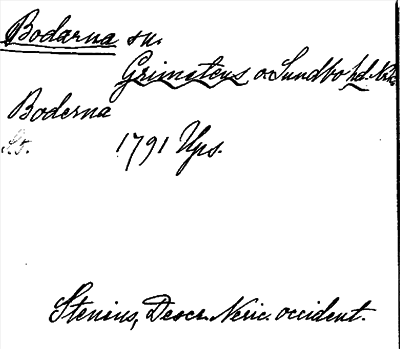 Bodarna sn.
Grimstens o. Sundbo hd. Nke
Boderna
1791 Ups.
Stenius, Descr. Neric. occident.